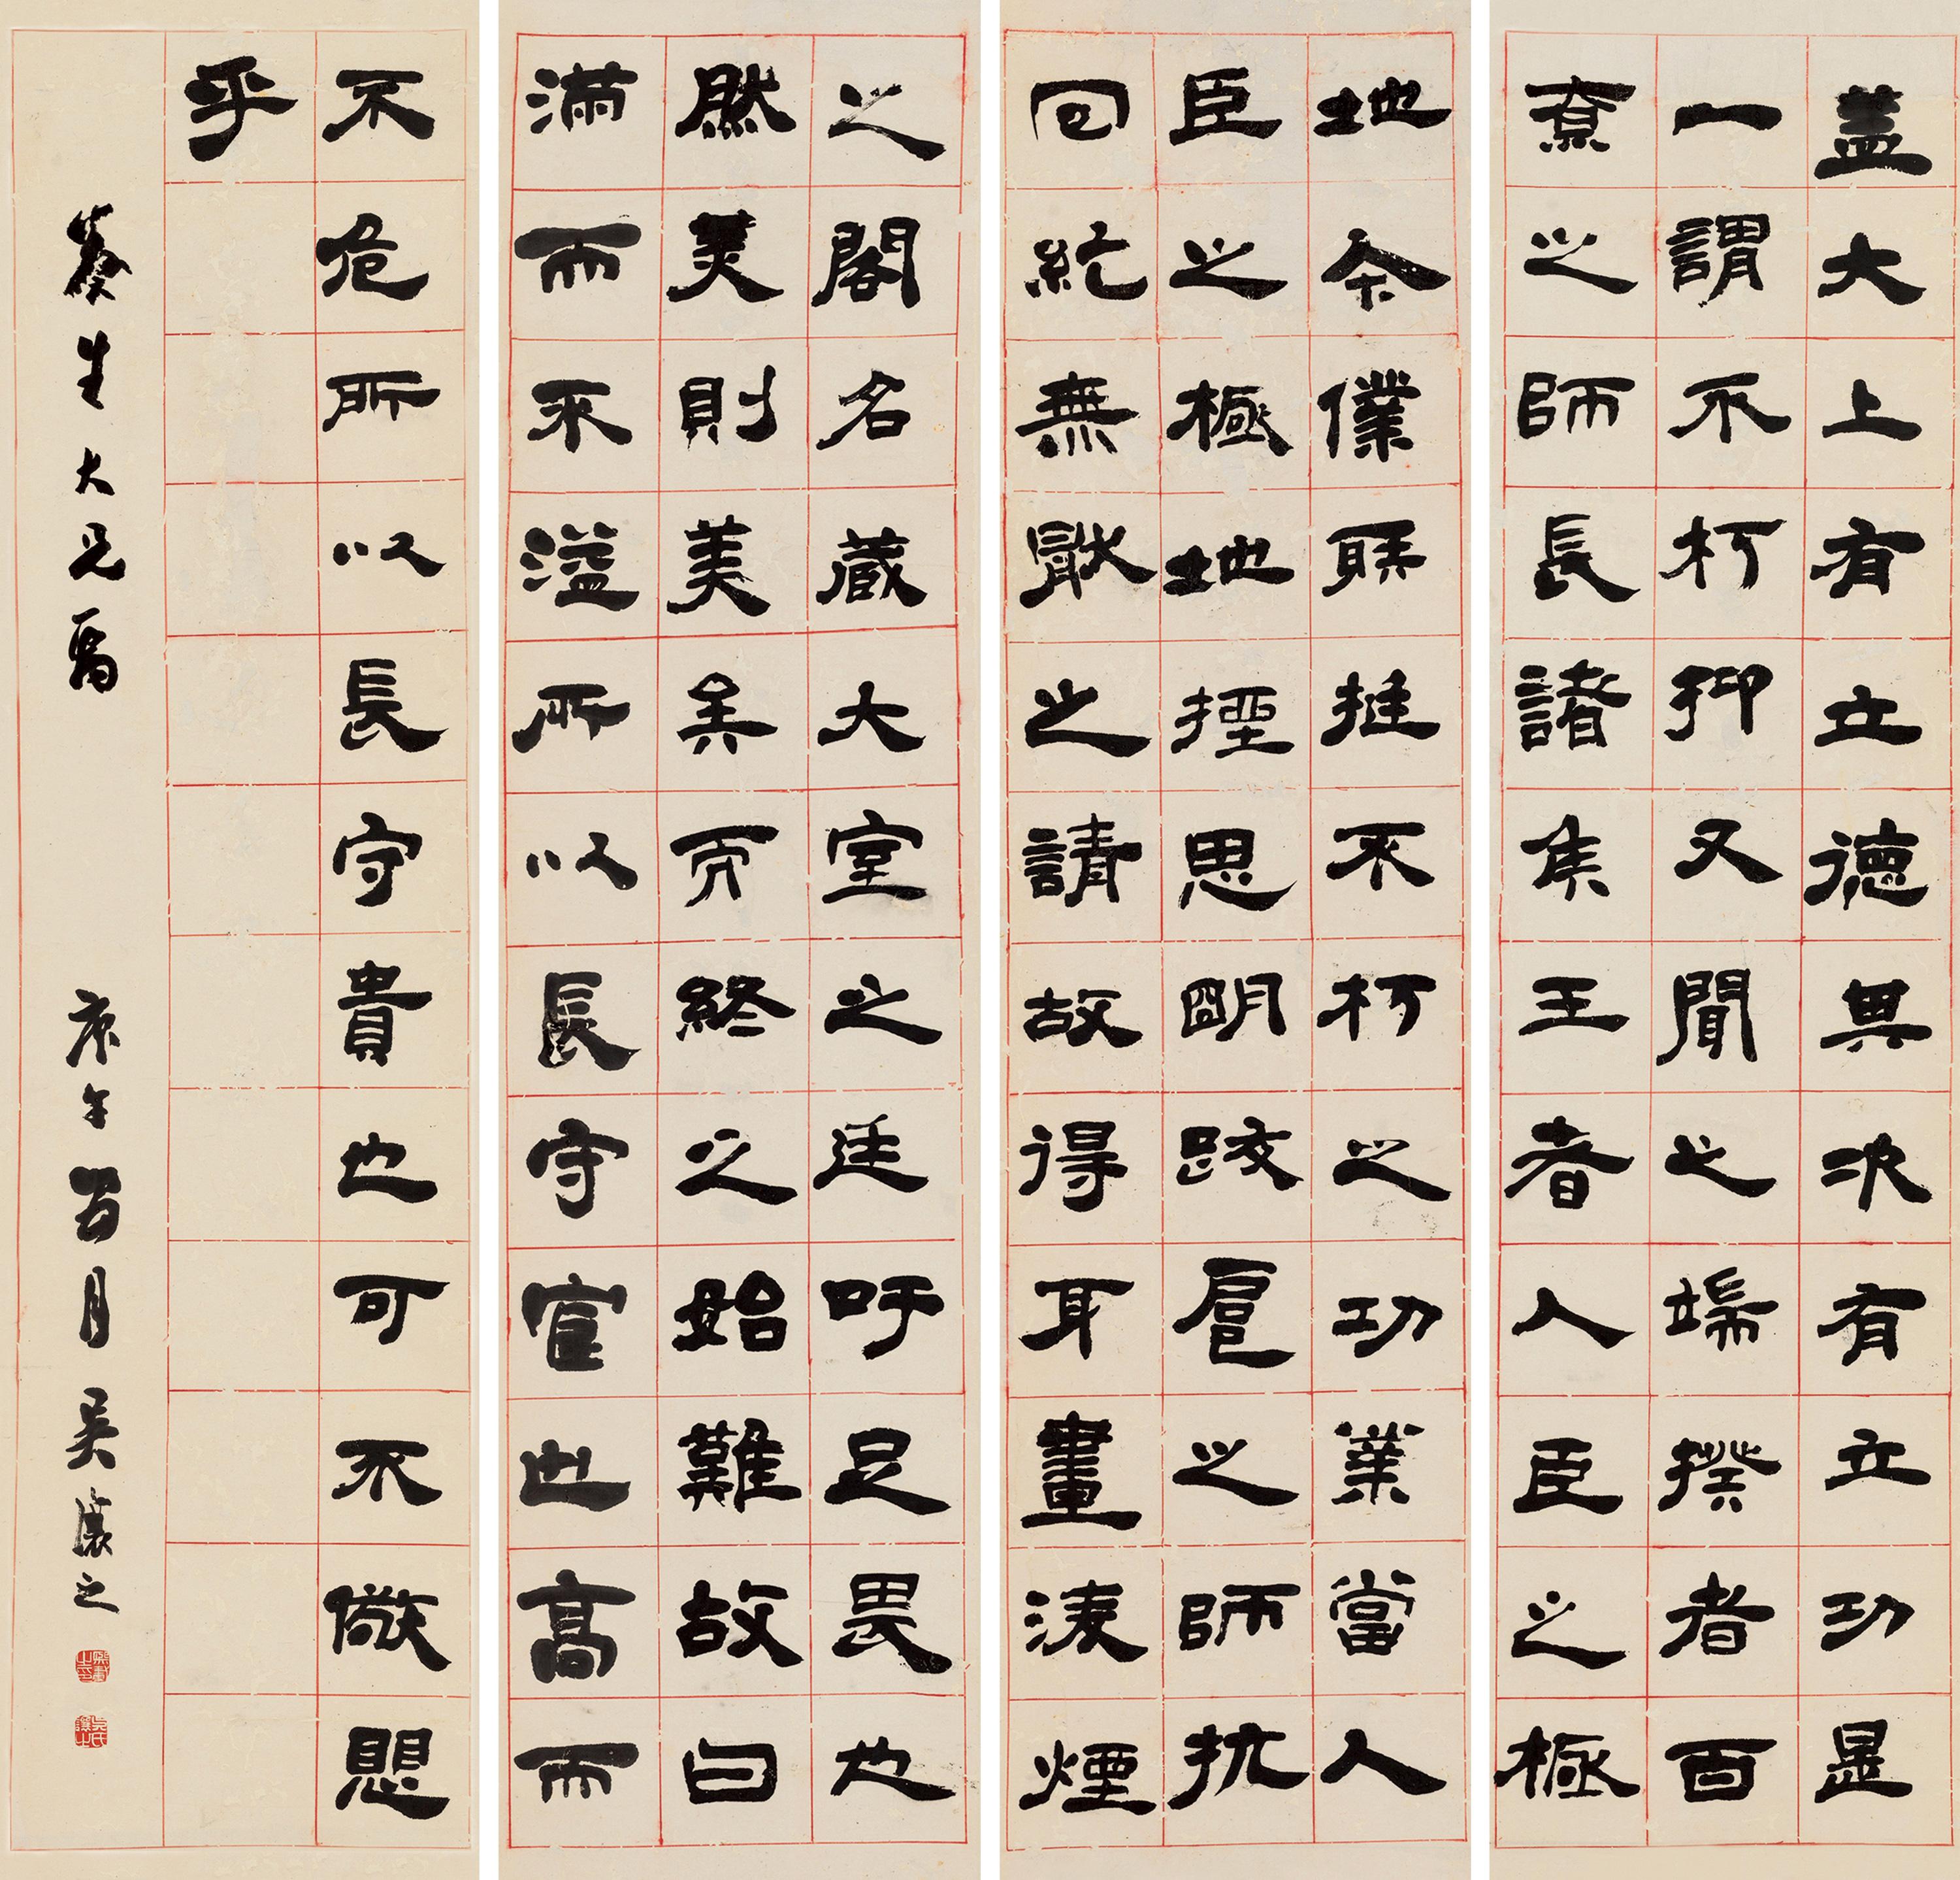 蓋大上有立德其次有立功是
一謂不朽抑又聞之端揆者百
寮之師長諸侯王者人臣之極
地今僕射挺不朽之功業當人
臣之極地思明跋扈之師抗
回紇無猒之請故得耳畫淩煙
之閣名藏大室之廷吁足畏也
然美則美矣而終之始難故曰
滿而不溢所以長守富也高而
不危所以長守貴也可不儆懼
乎
葵生大兄屬 庚午月吳讓之
熙載之印
吳氏讓之